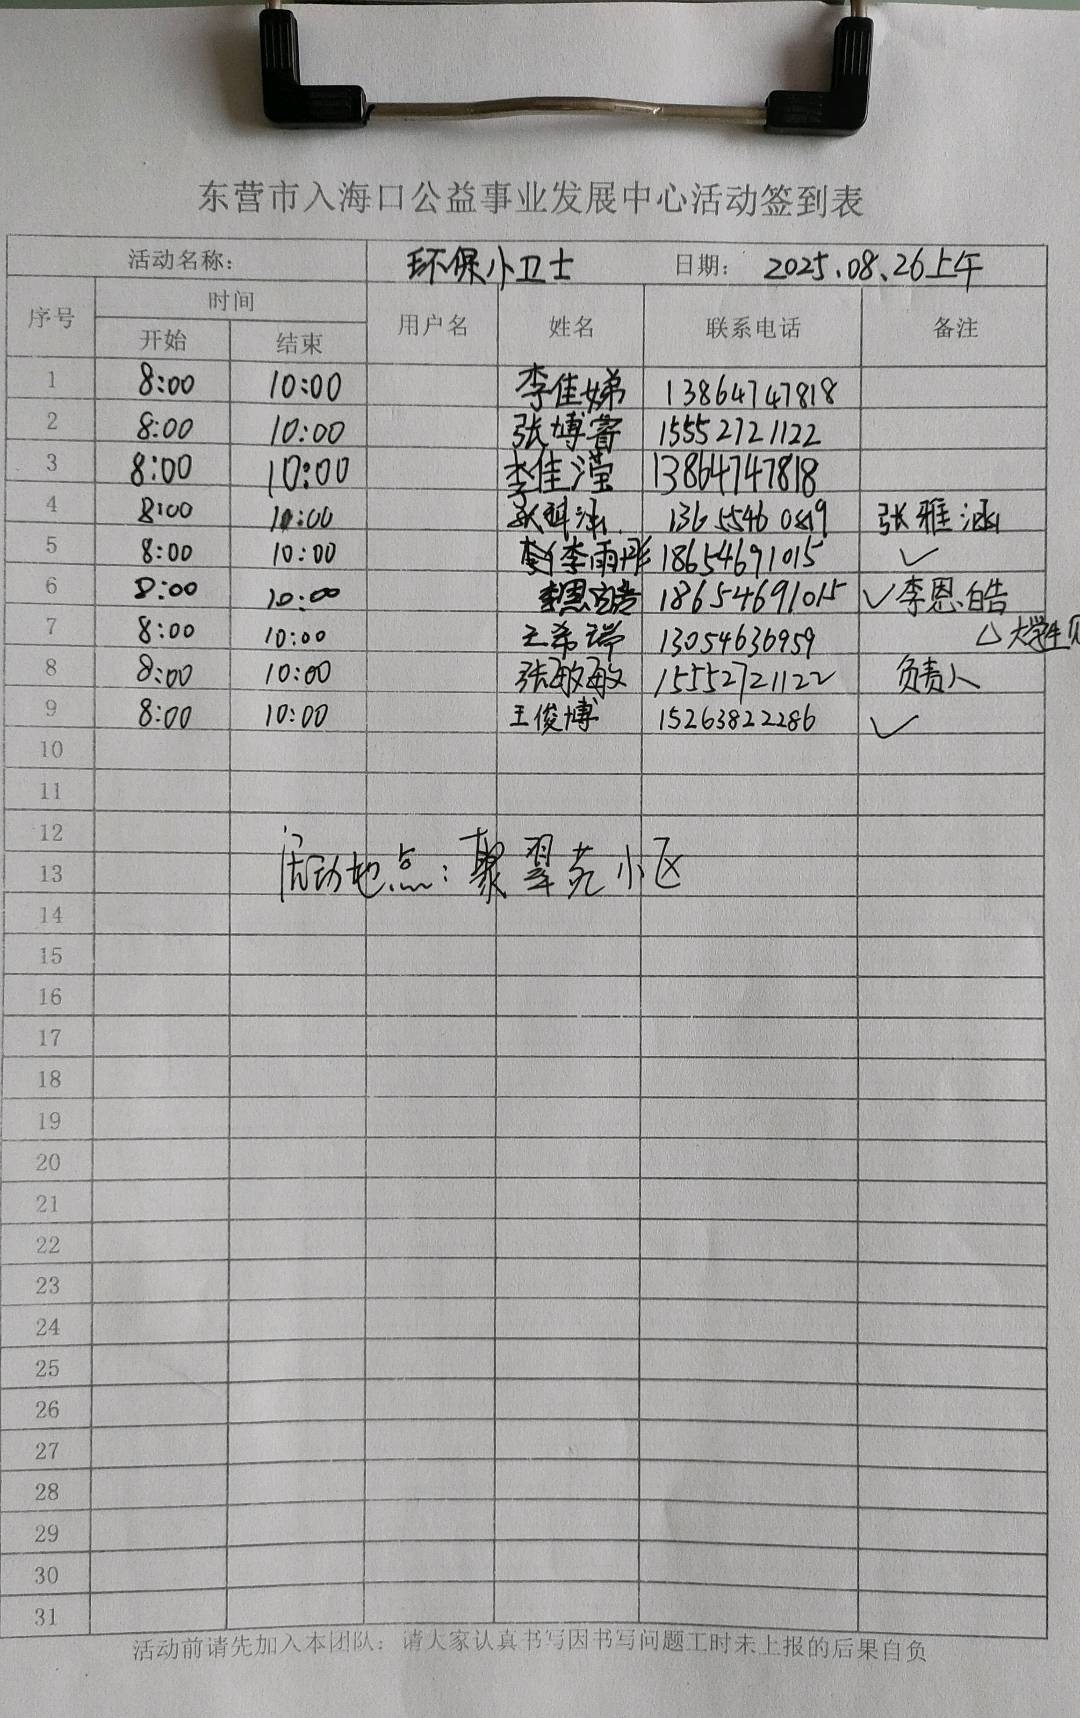 东营市入海口公益事业发展中心活动签到表
活动名称: 环保小卫士 日期: 2025.08.26上午
序号 时间 用户名 姓名 联系电话 备注
开始 结束
1 8:00 10:00 李佳娣 13864747818
2 8:00 10:00 张博睿 15552721122
3 8:00 10:00 李佳滢 13864747818
4 8:00 10:00 张雅涵 13655460819 张雅涵
5 8:00 10:00 李雨彤 18654691015 ✓
6 8:00 10:00 李恩皓 18654691015 ✓李恩皓
7 8:00 10:00 王希瑞 13054636959 △大学生
8 8:00 10:00 张敏敏 15552721122 负责人
9 8:00 10:00 王俊博 15263822286 ✓
10
11
12
13
活动地点: 聚翠苑小区
14
15
16
17
18
19
20
21
22
23
24
25
26
27
28
29
30
31
活动前请先加入本团队: 请大家认真书写因书写问题工时未上报的后果自负